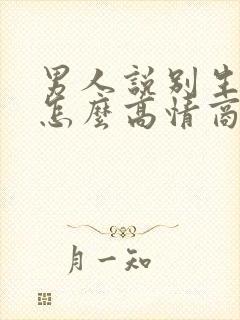 男人說別生
怎麼高情商
月一知